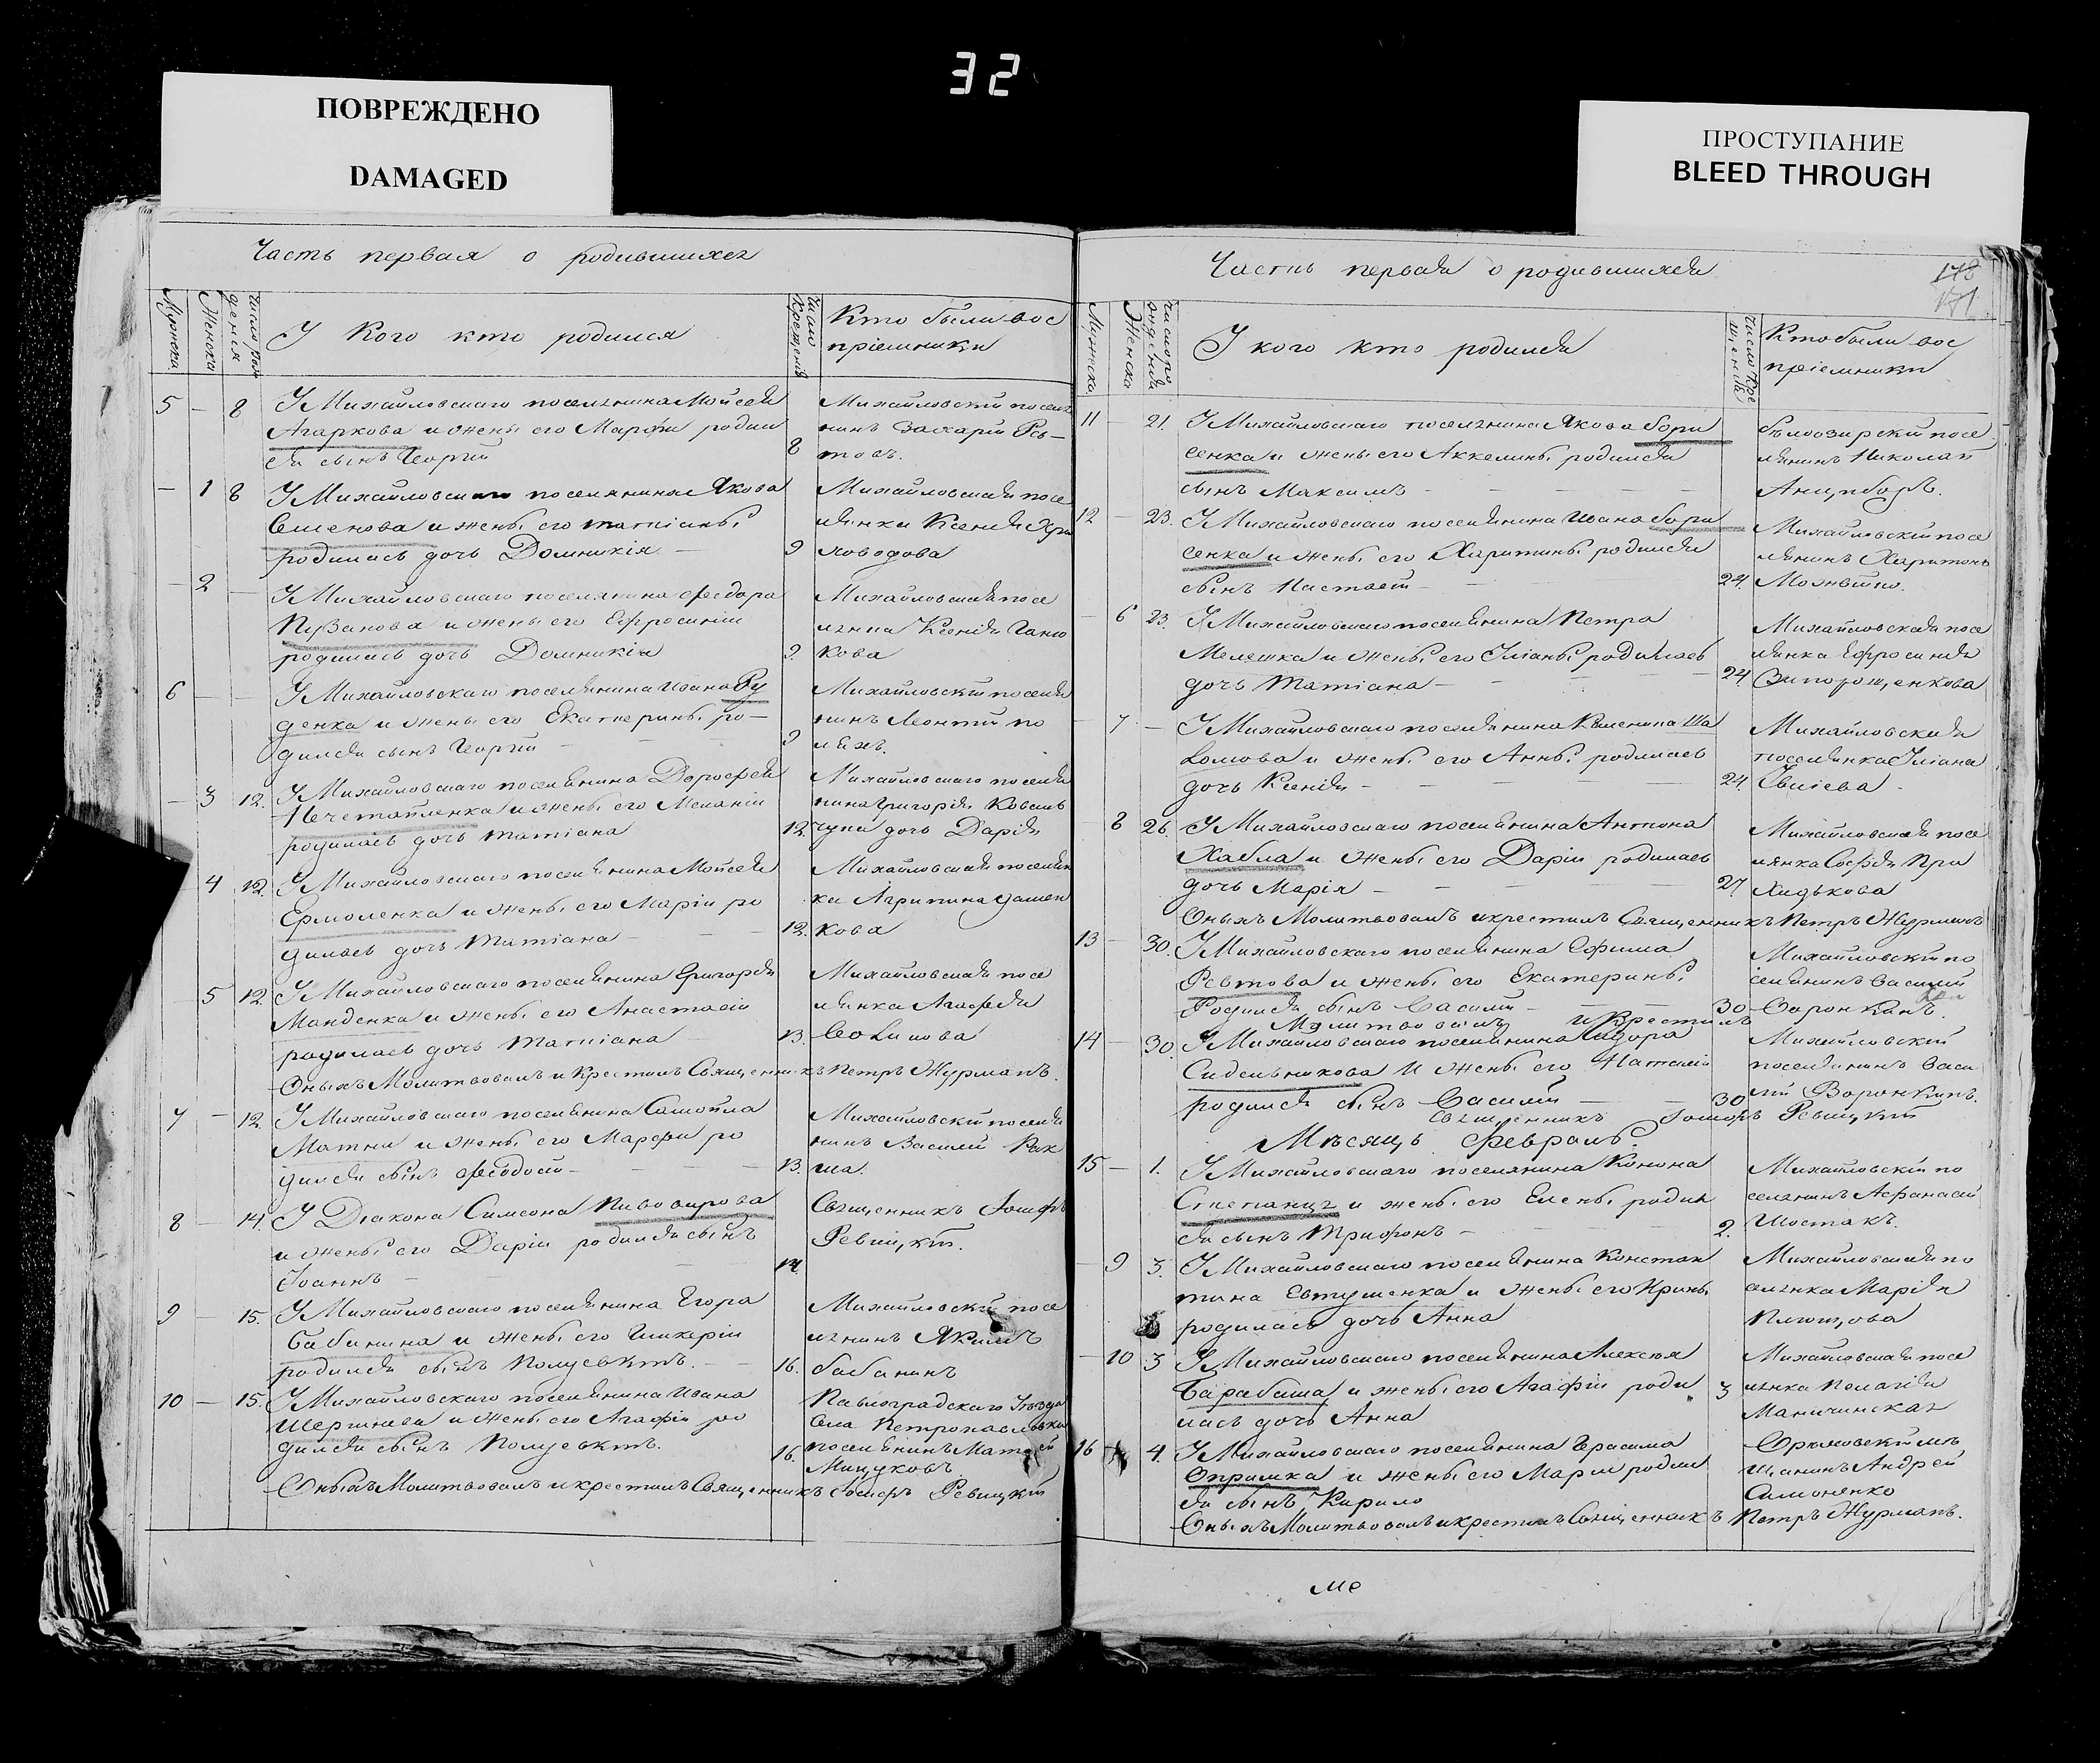 32
ПОВРЕЖДЕНО
DAMAGED
ПРОСТУПАНИЕ
BLEED THROUGH
Часть первая о родившихся
Мужеска
Женска
Число рож
денія
У Кого кто родился
Число
Крещенія
Кто были вос
пріемники
5 — 8 У Михайловскаго поселянина Мойсея
Агаркова и жены его Марфы родил
ся сынъ Георгій 8
Михайловскій поселя
нинъ Захарій Рев—
товъ.
— 1 8 У Михайловскаго поселянина Якова
Семенова и жены его татіаны
родилась дочь Домникія — 9
Михайловская посе
лянка Ксенія
— 2 — У Михайловскаго поселянина Феодора
Пузанова и жены его Ефросиніи
родилась дочь Домникія 9.
Михайловская посе
лянка Ксенія
кова
6 — — У Михайловскаго поселянина Ивана Ру
денка и жены его Екатерины ро—
дился сынъ Георгій — 9
Михайловскій поселя
нинъ Леонтій по
ляхъ.
— 3 12. У Михайловскаго поселянина Дорофея
Нечетайленка и жены его Меланіи
родилась дочь татіана 12.
Михайловскаго поселя
нина Григорія Коваль
чука дочь Дарія
4 12. У Михайловскаго поселянина Мойсея
Ермоленка и жены его Маріи ро
дилась дочь татіана — 12.
Михайловская поселян
ка Агрипина
кова
5 12. У Михайловскаго поселянина Григорія
Манденка и жены его Анастасіи
родилась дочь татіана 13.
Михайловская посе
лянка Агафія
Оныхъ Молитвовалъ и Крестилъ Священникъ Петръ Журманъ.
7 — 12. У Михайловскаго поселянина Самойла
Матни и жены его Марфы ро
дился сынъ Феодосій — 13.
Михайловскій поселя
нинъ Василій Рак
ша.
8 — 14. У Діакона Симеона Пивоварова
и жены его Даріи родился сынъ
Іоаннъ — 14.
Священникъ Іосифъ
Ревицкій.
9 — 15. У Михайловскаго поселянина Егора
Бабанина и жены его Гликеріи
родился сынъ Полуевктъ. — 16.
Михайловскій посе
лянинъ Якимъ
бабанинъ
10 — 15. У Михайловскаго поселянина Ивана
Шергинева и жены его Агафіи ро
дился сынъ Полуевктъ. 16.
Павлоградскаго Уезда
Села Петропавловки
поселянинъ Матфей
Мицуковъ
Оныхъ Молитвовалъ и крестилъ Священникъ Іосифъ Ревицкій
Часть первая о родившихся
178
171
Мужеска
Женска
Число ро
жденія
У кого кто родился
Число Кре
щенія
Кто были вос
пріемники
11 — 21. У Михайловскаго поселянина Якова Бори
сенка и жены его Аккелины родился
сынъ Максимъ —
бѣлоозирскій посе
лянинъ Николай
Анцыборъ.
12 — 23. У Михайловскаго поселянина Ивана Бори
сенка и жены его Харитины родился
сынъ Настасій — 24.
Михайловскій посе
лянинъ Харитонъ
— 6 23. У Михайловскаго поселянина Петра
Мелешка и жены его Уліаны родилась
дочь татіана — 24
Михайловская посе
лянка Ефросинія
Запорощенкова
— 7 — У Михайловскаго поселянина Климента Ша
и жены его Анны родилась
дочь Ксенія — 24.
Михайловская
поселянка Уліана
— 8 26. У Михайловскаго поселянина Антона
Хабла и жены его Даріи родилась
дочь Марія — 27
Михайловская посе
лянка Софія При
ходькова
Оныхъ Молитвовалъ и крестилъ Священникъ Петръ Журманъ
13 — 30. У Михайловскаго поселянина Ефима
Ревтова и жены его Екатерины
Родился сынъ Василій — 30
Михайловскій по
селянинъ Василій
Воронкинъ.
Молитвовалъ и Крестилъ
14 — 30. У Михайловскаго поселянина Сидора
Сидельникова и жены его Наталіи
родился сынъ Василій — 30
Михайловскій
поселянинъ Васи
лій Воронкинъ.
Священникъ Іосифъ Ревицкій
Мѣсяцъ Февраль.
15 — 1. У Михайловскаго поселянина Конона
Степанца и жены его Елены родил
ся сынъ Трифонъ — 2.
Михайловскій по
селянинъ Афанасій
Шостакъ.
— 9 3. У Михайловскаго поселянина Констан
тина Евтушенка и жены его Ирины
родилась дочь Анна
Михайловская по
селянка Марія
— 10 3 У Михайловскаго поселянина Алексея
Барабаша и жены его Агафіи роди
лась дочь Анна 3
Михайловская посе
лянка Пелагія
Маничинская
16 4. У Михайловскаго поселянина Герасима
Опришка и жены его Маріи родил
ся сынъ Кирило
Ореховскій мѣ
щанинъ Андрей
Симоненко
Оныхъ Молитвовалъ и крестилъ Священникъ Петръ Журманъ.
ме